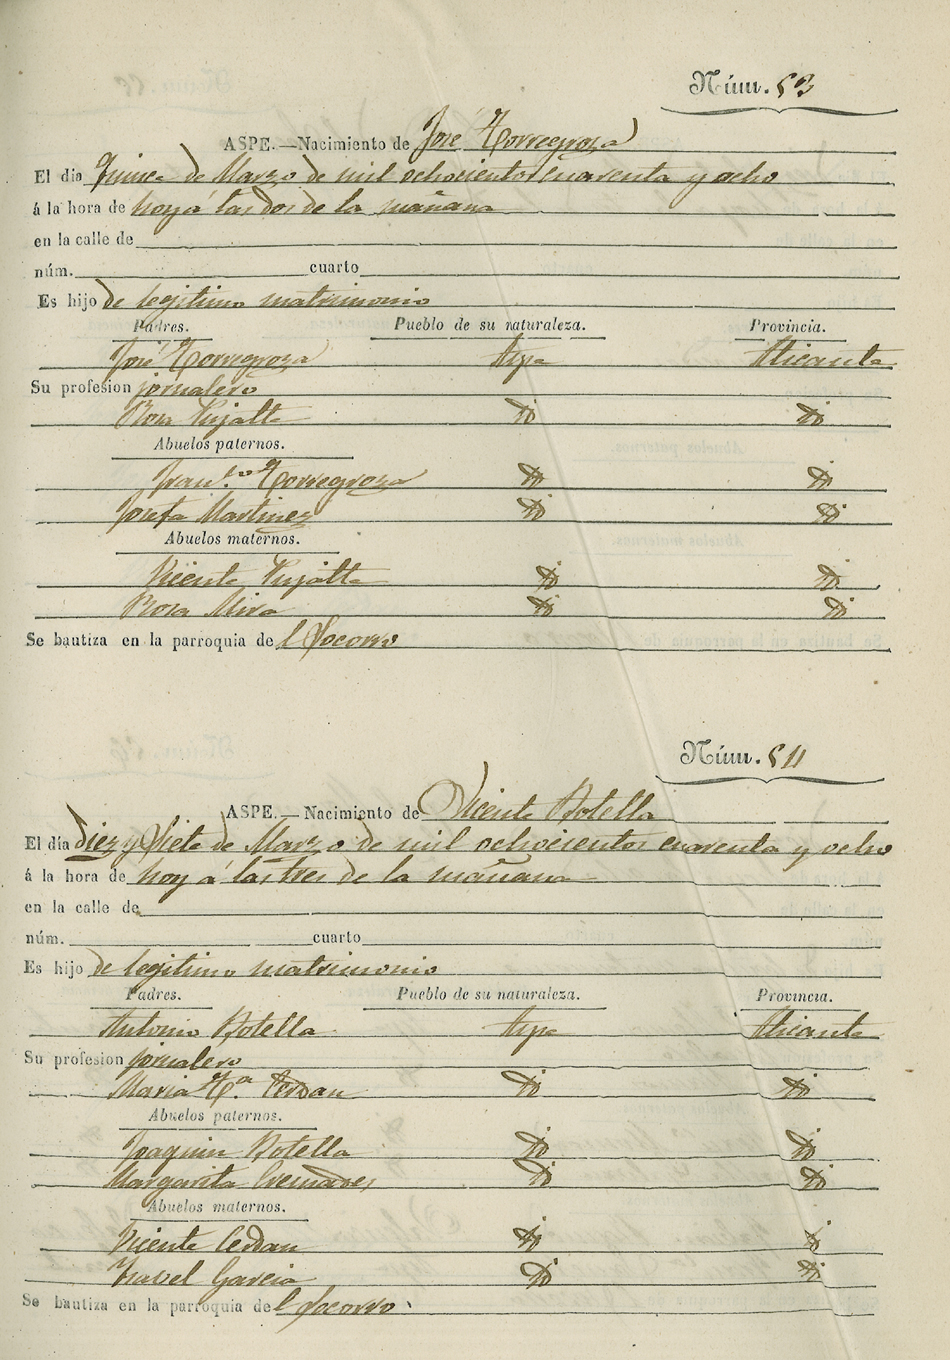 Núm. 53
ASPE.—Nacimiento de José Torregroza
El dia Quince de Marzo de mil ochocientos cuarenta y ocho
á la hora de hoy á las dos de la mañana
en la calle de
núm. cuarto
Es hijo de legitimo matrimonio
Padres. Pueblo de su naturaleza. Provincia.
José Torregroza Aspe Alicante
Su profesion jornalero
Rosa Pujalte Id Id
Abuelos paternos.
Fran.co Torregroza Id Id
Josefa Martinez Id Id
Abuelos maternos.
Vicente Pujalte Id Id
Rosa Mira Id Id
Se bautiza en la parroquia de l Socorro
Núm. 54
ASPE.—Nacimiento de Vicente Botella
El día diez y Siete de Marzo de mil ochocientos cuarenta y ocho
á la hora de hoy á las tres de la mañana
en la calle de
núm. cuarto
Es hijo de legitimo matrimonio
Padres. Pueblo de su naturaleza. Provincia.
Antonio Botella Aspe Alicante
Su profesion jornalero
Maria T.a Cerdan Id Id
Abuelos paternos.
Joaquin Botella Id Id
Margarita Cremades Id Id
Abuelos maternos.
Vicente Cerdan Id Id
Isabel Garcia Id Id
Se bautiza en la parroquia de l Socorro